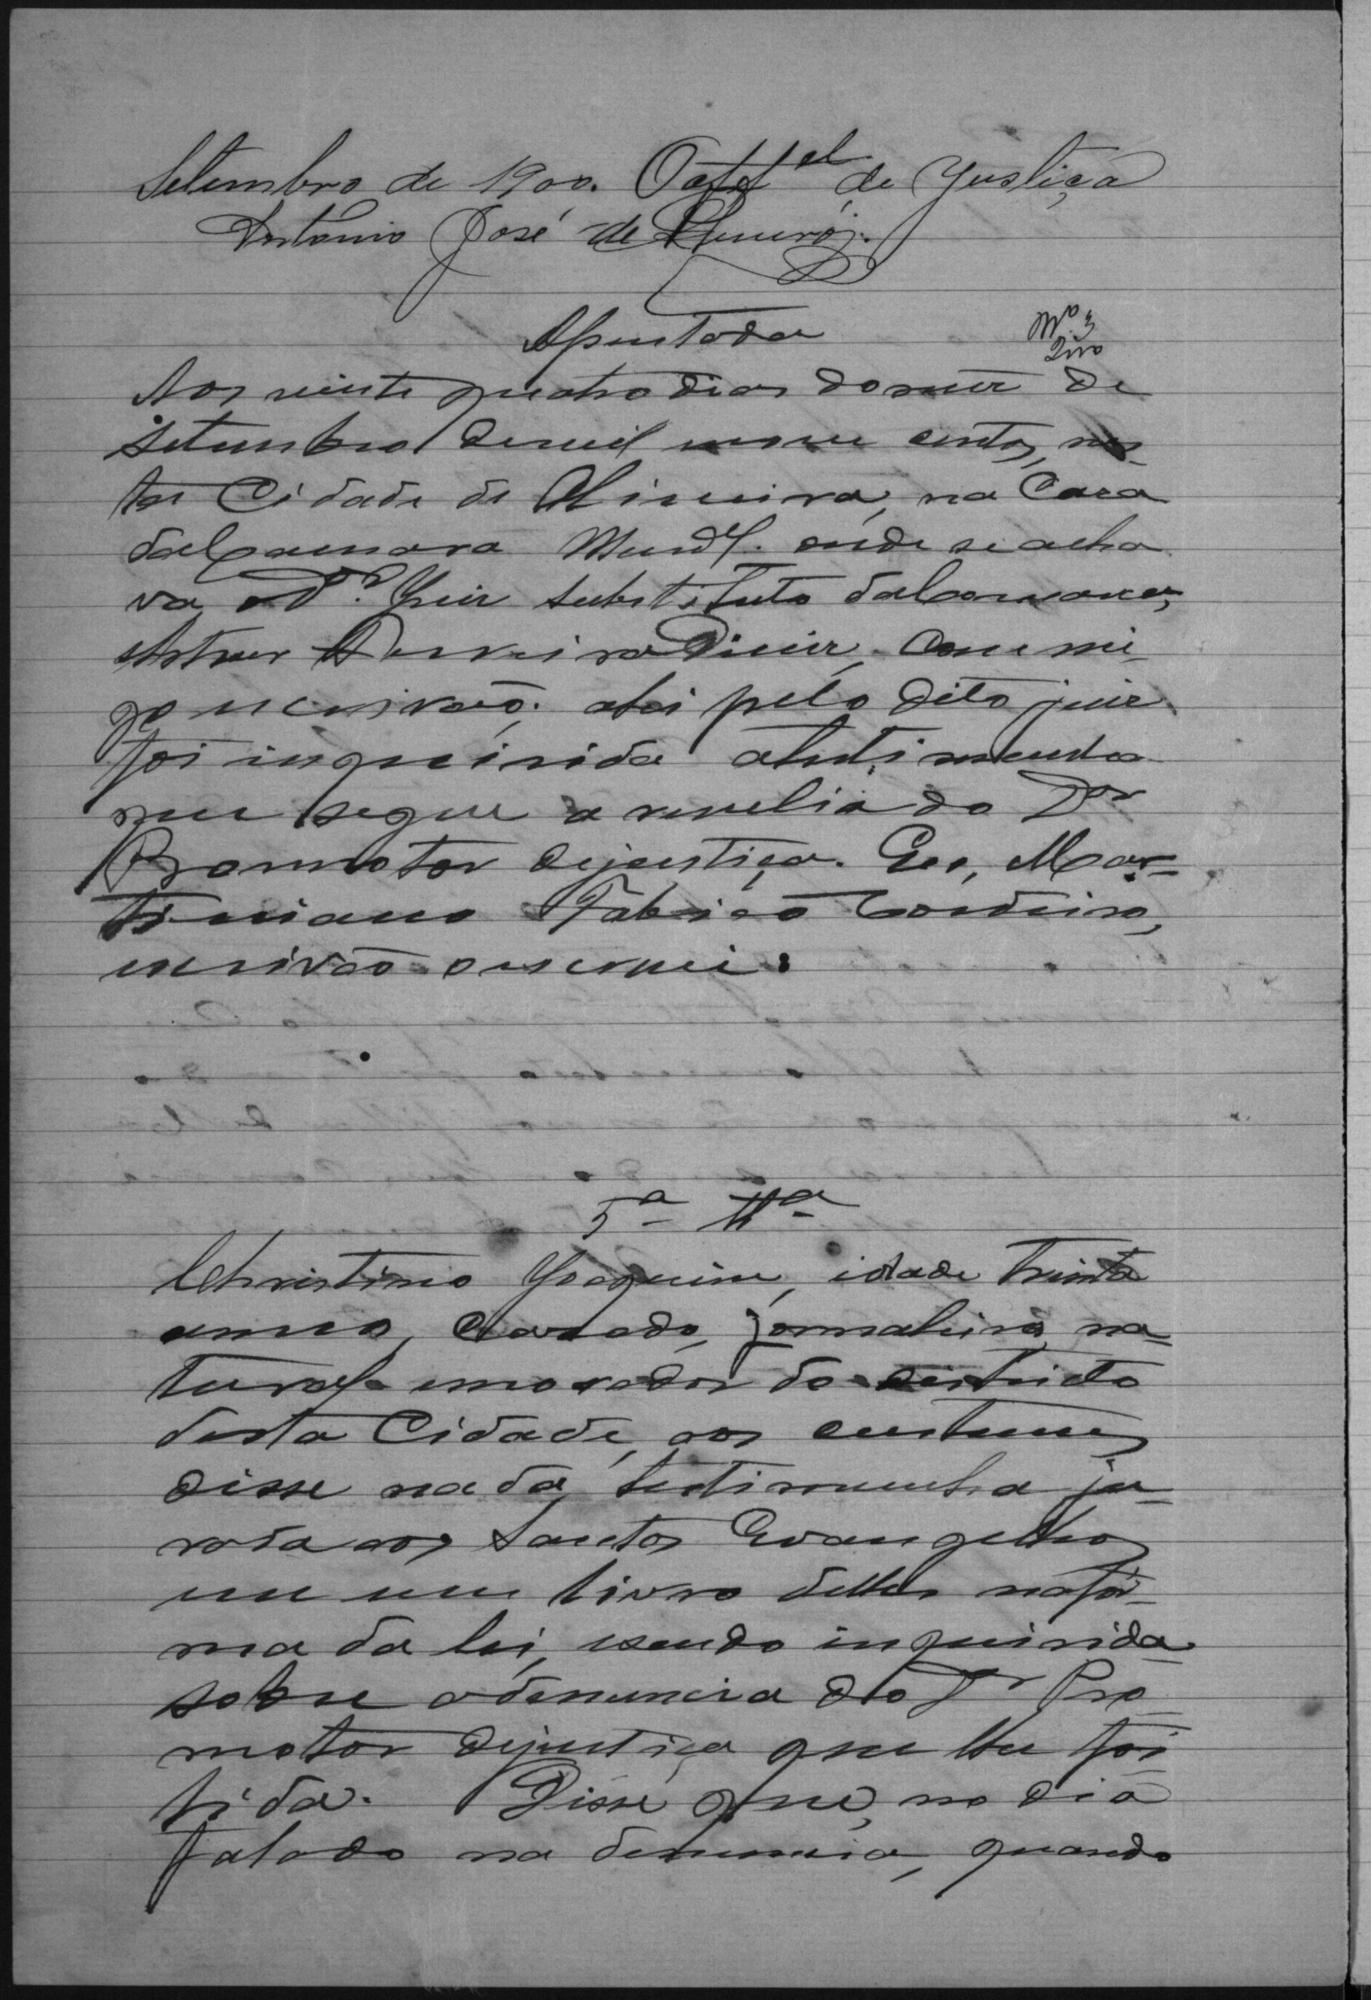 Setembro de 1900. O off.el de Justiça
Antonio José de
Assentada
Aos vinte quatro dias do mez de
Setembro de mil nove centos, nes-
ta Cidade de na Caza
da Camara Mun.al onde se acha
va o Dr. Juiz substituto da Comarca,
Arthur Diniz, comi
go escrivão, ahi pelo dito juiz
foi inquirida a testimunha
que segue a revelia do Dor
Promotor de justiça. Eu, Mar-
tiniano Fabião Cordeiro,
escrivão o escrevi.
5ª Ttª
Christino Joaquim, idade trinta
annos, casado, jornaleiro, na-
tural e morador do districto
desta Cidade, aos custumes
disse nada, testimunha ju-
rada aos Santos Evangelhos
em um livro delles na for-
ma da lei, e sendo inquirida
sobre a denuncia do Dr Pro-
motor de justiça que lhe foi
lida. Disse que, no dia
falado na denuncia, quando